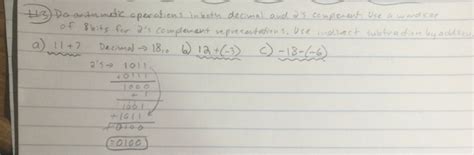 1.13) Do arithmetic operations in both decimal and 2's compement. Use a wordsize
of 8bits for 2's complement representations. Use indirect subtraction by addition
a) 11 + 7 Decimal → 18₁₀ b) 12 + (-3) c) -13 - (-6)
2's → 1011
+0111
1000
+ 1
1001
+1011
10100
= 0100